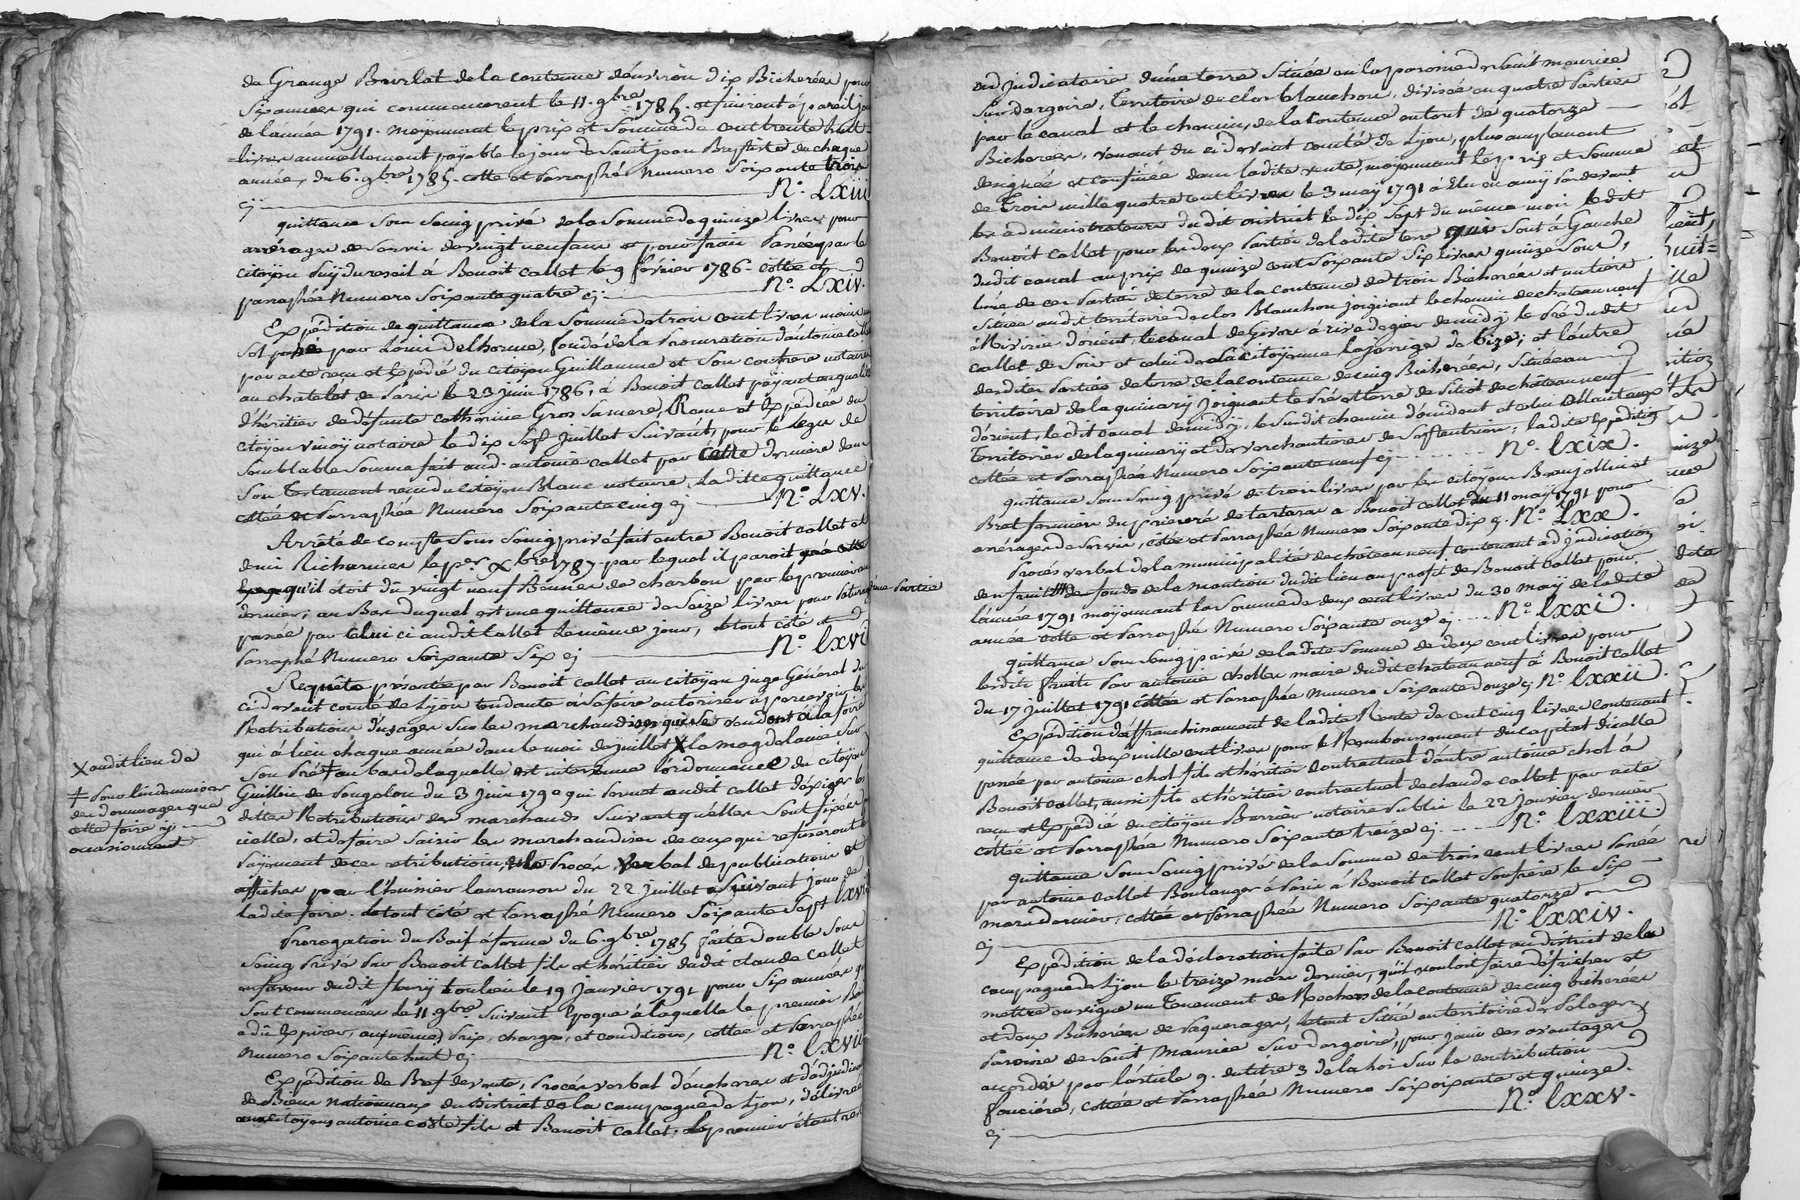 de Grange Bourlat de la contenue d'environ dix Bicherées pour
Six années qui commencerent le 11. 9bre 1785. et finiront à pareil jour
de l'année 1791. moÿennant le prix et Somme de cent trente huit =
= livres annuellement païable le jour de Saint jean Baptiste de chaque
année, du 6. 9bre 1785. cotte et Parraphée Numero Soixante trois
cj N.o LXIII
quittance Sous Seing privé de la Somme de quinze livres pour
arrérages de Servis de vingt neuf ans et pour frais Passée par le
citoÿen à Benoit Callet le 9 février 1786 - cottée et
parraphée Numero Soixante quatre cj N.o LXIV.
Expédition de quittance de la Somme de trois cent livres moins un
Sol passée par Louis Delhorme, fondé de la Procuration d'antoine callet
par acte reçu et Expédié du citoÿen Guillaume et Son confrere notaires
au chatelet de Paris le 23 juin 1786, à Benoit Callet païant en qualité
d'héritier de défunte catherine Gros Sa mere, Recue et Expédiée du
citoÿen vinoÿ notaire le dix Sept Juillet Suivant, pour le Legs de
Semblable Somme fait aud. antoine callet par cette derniere dans
Son testament reçu du citoÿen Blanc notaire, La ditte quittance
cottée et Parraphée Numéro Soixante cinq cj N.o LXV.
Arrêté de compte Sous Seing privé fait entre Benoit callet et
denis Richarmes le per Xbre 1787 par lequel il paroit
qu'il étoit dû vingt neuf Bennes de charbon par le premier au
dernier; au Bas duquel est une quittance de Seize livres pour
passée par celui ci au dit Callet le même jour, le tout côté et
Parraphé Numero Soixante Six cj N.o LXVI
Requête présentée par Benoit Callet au citoÿen juge Général du
ci devant comté de Lyon tendante à Se faire autoriser à percevoir les
Retributions d'usages Sur les marchandises qui Se vendent à la foire
qui à lieu chaque année dans le mois de juillet X la magdelaine Sur
Son Pré ‡ au bas de laquelle est intervenue l'ordonnance du citoÿen
Guillin de Pougelon du 3 Juin 1790 qui Permet audit callet d'exiger les
dittes Rétributions des marchands Suivant qu'elles Sont fixées
icelle, et de faire Saisir les marchandises de ceux qui refuseront le
Paÿement de ces retributions, et le Procès verbal de publication et
affiches par l'huissier laurenson du 22 Juillet Suivant jour de
ladite foire. le tout côté et Parraphé Numero Soixante Sept LXVII
X audit lieu de
‡ Pour l'indemniser
des dommages que
cette foire ij
occasionnent
Prorogation du Bail à ferme du 6. 9bre 1785 faite double Sous
Seing Privé Par Benoit Callet fils et héritier dudit claude callet
en faveur dudit fleurÿ toulieu le 19 Janvier 1791 pour Six années qui
Sont commencées le 11 9bre Suivant Epoque à laquelle le premier Bail
a dû Expirer, aux mêmes Prix, charges, et conditions, cottée et Parraphée
Numero Soixante huit cj N.o LXVIII
Expédition de Bref de vente, Procès verbal d'encheres et d'adjudication
de Biens nationnaux du District de la campagne de Lyon, délivrée
aux citoÿens antoine coste fils et Benoit Callet; le premier étant resté
adjudicataire d'une terre Située en la paroisse de Saint maurice
Sur dargoire, Territoire de clos blanchon, divisée en quatre Parties
par le canal et le chemin, de la Contenue en tout de quatorze
Bicherées, venant du ci devant comté de Lyon, plus amplement
designée et confinée dans la dite vente, moÿennant le prix et Somme
de Trois mille quatre cent livres le 3 maÿ 1791 à Elu en amÿ Par devant
les administrateurs du dit district le dix Sept du même mois le dit
Benoit Callet pour les deux Parties de la dite terre qui Sont à Gauche
du dit canal au prix de quinze cent Soixante Six livres quinze Sous,
l'une de ces Parties de terre de la contenue de trois Bicherées et un tiers
Située audit territoire de clos Blanchon joignant le chemin de chateau neuf
à d'orient, le canal de Givors à rive de gier de midÿ, le Pré du dit
callet de Soir et celui de la citoÿenne Lajarrige de bize; et l'autre
des dites Parties de terre de la contenue de cinq Bicherées, Située au
territoire de la quinarÿ joignant le Pré et terre de Sitiot de château neuf
d'orient, le dit canal de midÿ, le Susdit chemin d'occident et celui allant aux
Territoires de la quinarÿ et des verchantieres de Septentrion; la dite Expedition
cottée et Parraphée Numero Soixante neuf cj N.o LXIX.
quittance Sous Seing privé de trois livres par les citoÿens Beaujollin et
Brat fermiers du prieuré de tartaras a Benoit callet du 11 may 1791 pour
arrérages de Servis, côtée et Parraphée Numero Soixante dix cj. N.o LXX.
Procés verbal de la municipalité de château neuf contenant adjudication
des fruits de fonds de la mention du dit lieu au profit de Benoit Callet pour
l'année 1791 moÿennant la Somme de deux cent livres du 30 maÿ de la dite
année cotté et Parraphé Numero Soixante onze cj N.o LXXI.
quittance Sous Seing privé de la dite Somme de deux cent livres pour
lesdits fruits Par antoine chollet maire du dit chateau neuf à Benoit Callet
du 17 Juillet 1791 côtée et Parraphée Numero Soixante douze cj N.o LXXII.
Expédition d'affranchissement de la dite Rente de cent cinq livres contenant
quittance de deux mille cent livres pour le Remboursement du capital d'icelle
passée par antoine chol fils et héritier contractuel d'autre antoine chol à
Benoit Callet, aussi fils et héritier contractuel de claude callet par acte
reçu et Expédié du citoÿen Barrier notaire Public le 22 janvier dernier
cottée et Parraphée Numero Soixante treize cj N.o LXXIII.
quittance Sous Seing privé de la Somme de trois cent livres Passée
par antoine Callet Boulanger à Paris à Benoit Callet Son frere le Six
mars dernier, cottée et Parraphée Numero Soixante quatorze
cj N.o LXXIV.
Expédition de la déclaration faite Par Benoit Callet au district de la
campagne de Lyon le treize mars dernier, qu'il vouloit faire défricher et
mettre en vigne un Tenement de Rochers de la contenue de cinq bicherées
et deux Bicherées de Paquerages, le tout Situé au territoire de
Paroisse de Saint Maurice Sur dargoire, pour jouir des avantages
accordés par l'article 9. du titre 3 de la Loi Sur la contribution
fonciere, cottée et Parraphée Numero Soixante et quinze.
cj N.o LXXV.